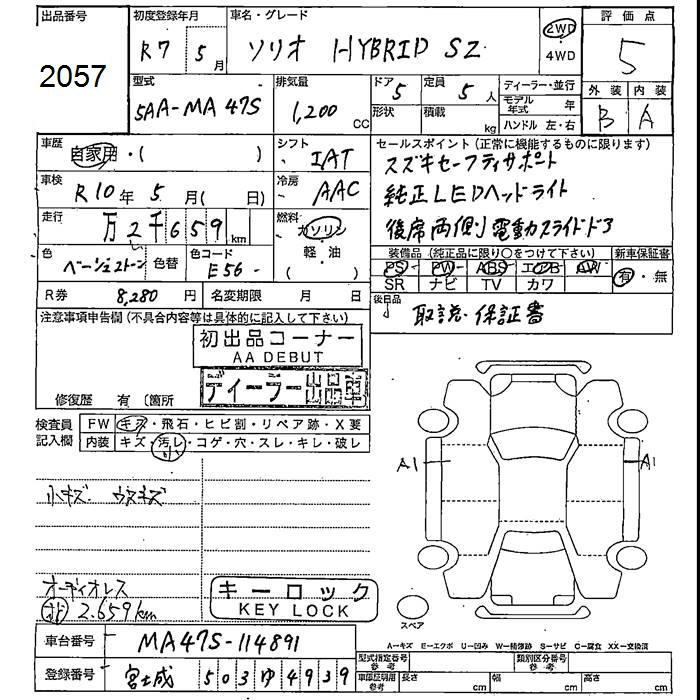 出品番号 初度登録年月 車名・グレード 評価点
2057 R7年5月 ソリオ HYBRID SZ 2WD・4WD 5
型式 排気量 ドア 5 定員 5人 ディーラー・並行 外装 内装
5AA-MA47S 1,200 CC 形状 積載 kg モデル年式 年 B A
ハンドル 左・右
車歴 自家用・( ) シフト IAT セールスポイント (正常に機能するものに限ります)
スズキセーフティサポート
車検 R10年5月( 日) 冷房 AAC 純正LEDヘッドライト
走行 万2千659km 燃料 ガソリン・軽・油( ) 後席両側電動スライドドア
色 ベージュストーン 色替 色コード E56- 装備品 (純正品に限り○をつけて下さい) 新車保証書
PS PW ABS エアB AW 有・無
SR ナビ TV カワ
R券 8,280円 名変期限 月 日 後日品 取説・保証書
注意事項申告欄 (不具合内容等は具体的に記入して下さい)
初出品コーナー
AA DEBUT
ディーラー出品車
修復歴 有 〔箇所
検査員記入欄 FW キズ・飛石・ヒビ割・リペア跡・X要
内装 キズ・汚レ・コゲ・穴・スレ・キレ・破レ
小
A1 A1
小キズ ウスキズ
オーディオレス
キーロック
KEY LOCK
オド 2.659km
スペア
A-キズ E-エクボ U-凹み W-補修跡 S-サビ C-腐食 XX-交換済
車台番号 MA47S-114891
型式指定番号 参考 類別区分番号 参考
登録番号 富士成 503ゆ4939
車庫証明用 参考 長さ cm 幅 cm 高さ cm